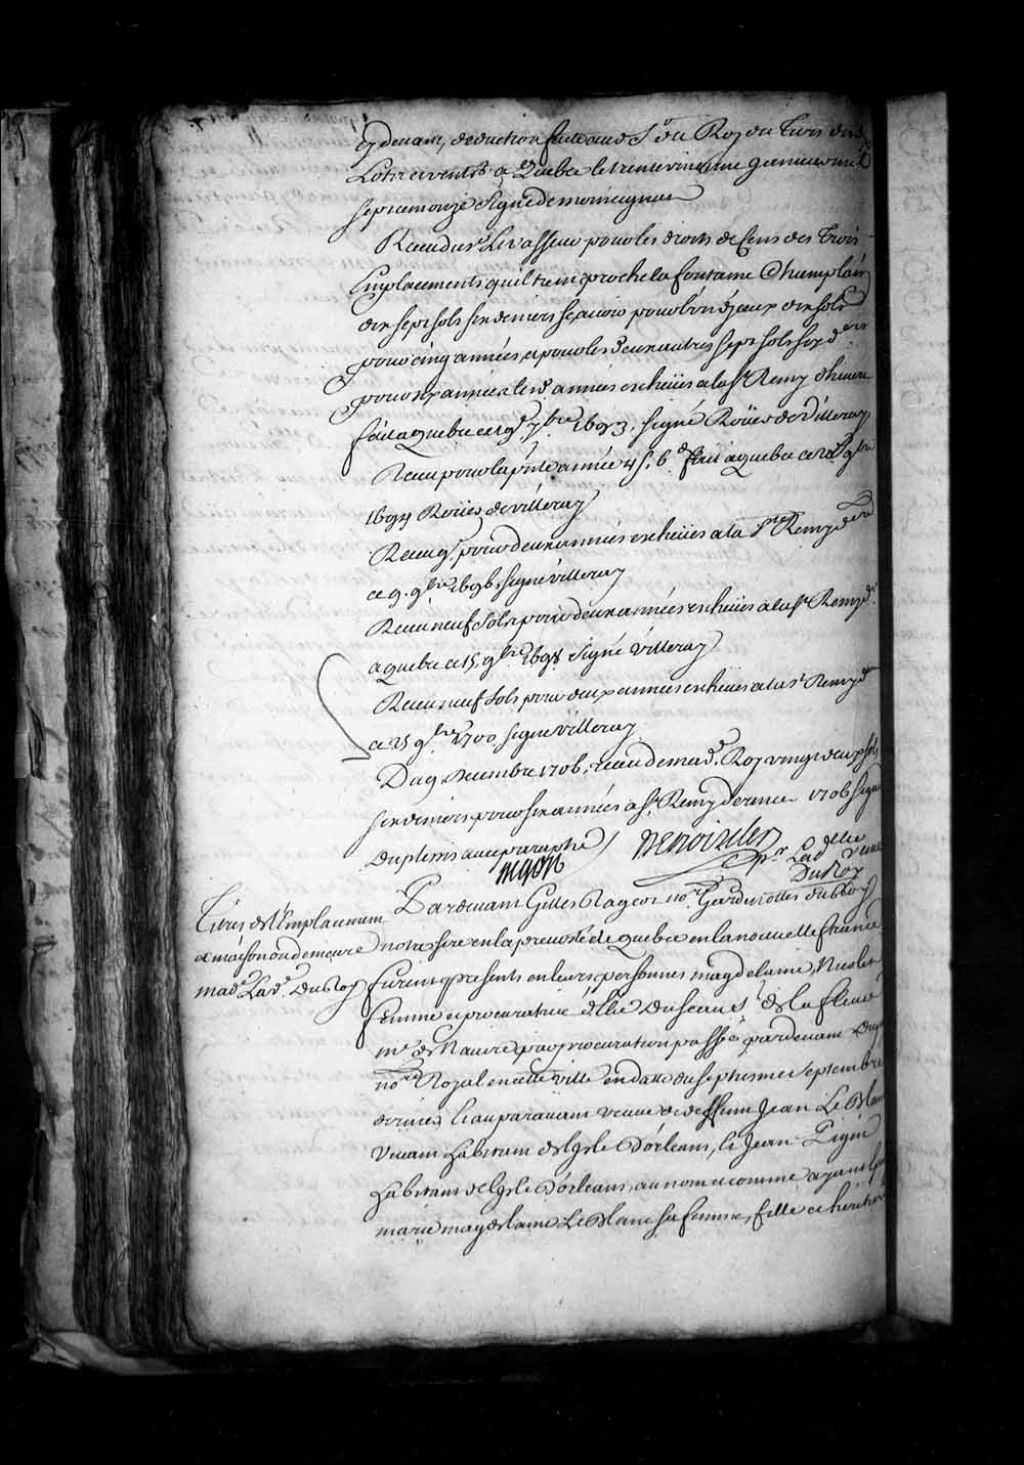 cy devant, deduction faite aud Sr du Roy du tiers desd
Lots et ventes a Quebec le trente vniesme Janvier mil
sept cent onze signé de monseignat
Receu du sr Levasseur pour les droits de cens des trois
Emplacements qu'il tient proche la fontaine Champlain
dix sept sols six deniers scavoir pour l'un d'jceux dix sols
pour cinq années, et pour les deux autres sept sols six drs
pour six années lesd années escheües a la St Remy dheure
fait a quebec ce 9e 7bre 1693. signé Roüer de Villeray
Receu pour la pnte année 4 s. 6 d fait a quebec ce 9bre
1694 Roüer de villeray
Receu 9s. pour deux années escheües a la St Remy dere
ce 9. 9bre 1696. signé villeray
Receu neuf sols pour deux années escheües a la St Remy dre
a quebec ce 15. 9bre 1698 signé villeray
Receu neuf sols pour deux années escheües a la St Remy dre
ce 25 9bre 1700 signé villeray
Du 9 decembre 1706, receu de mad. Roy vingt deux sols
six deniers pour six années a St Remy derniere 1706 signé
Duplessis avec paraphe
pr Lad delle
veuve
DuRoy
Titres de l'Emplacement
et maison ou demeure
made Lad. DuRoy
Pardevant Gilles Rageot nore Gardenottes du Roy
nostre sire en la prevosté de quebec en la nouvelle france
furent presents en leurs personnes magdelaine Nicolet
femme et procuratrice d'Elie Dusceau sr de la fleur
mre de Navire par procuration passée pardevant
nore Royal en cette ville en datte du septiesme septembre
dernier, et auparavant veuve de deffunt Jean Le Blanc
vivant habitant de l'jsle d'orleans, et Jean Pigin
habitant de l'jsle d'orleans, au nom et comme ayant
marie magdelaine Le Blanc sa femme, fille et heritiere